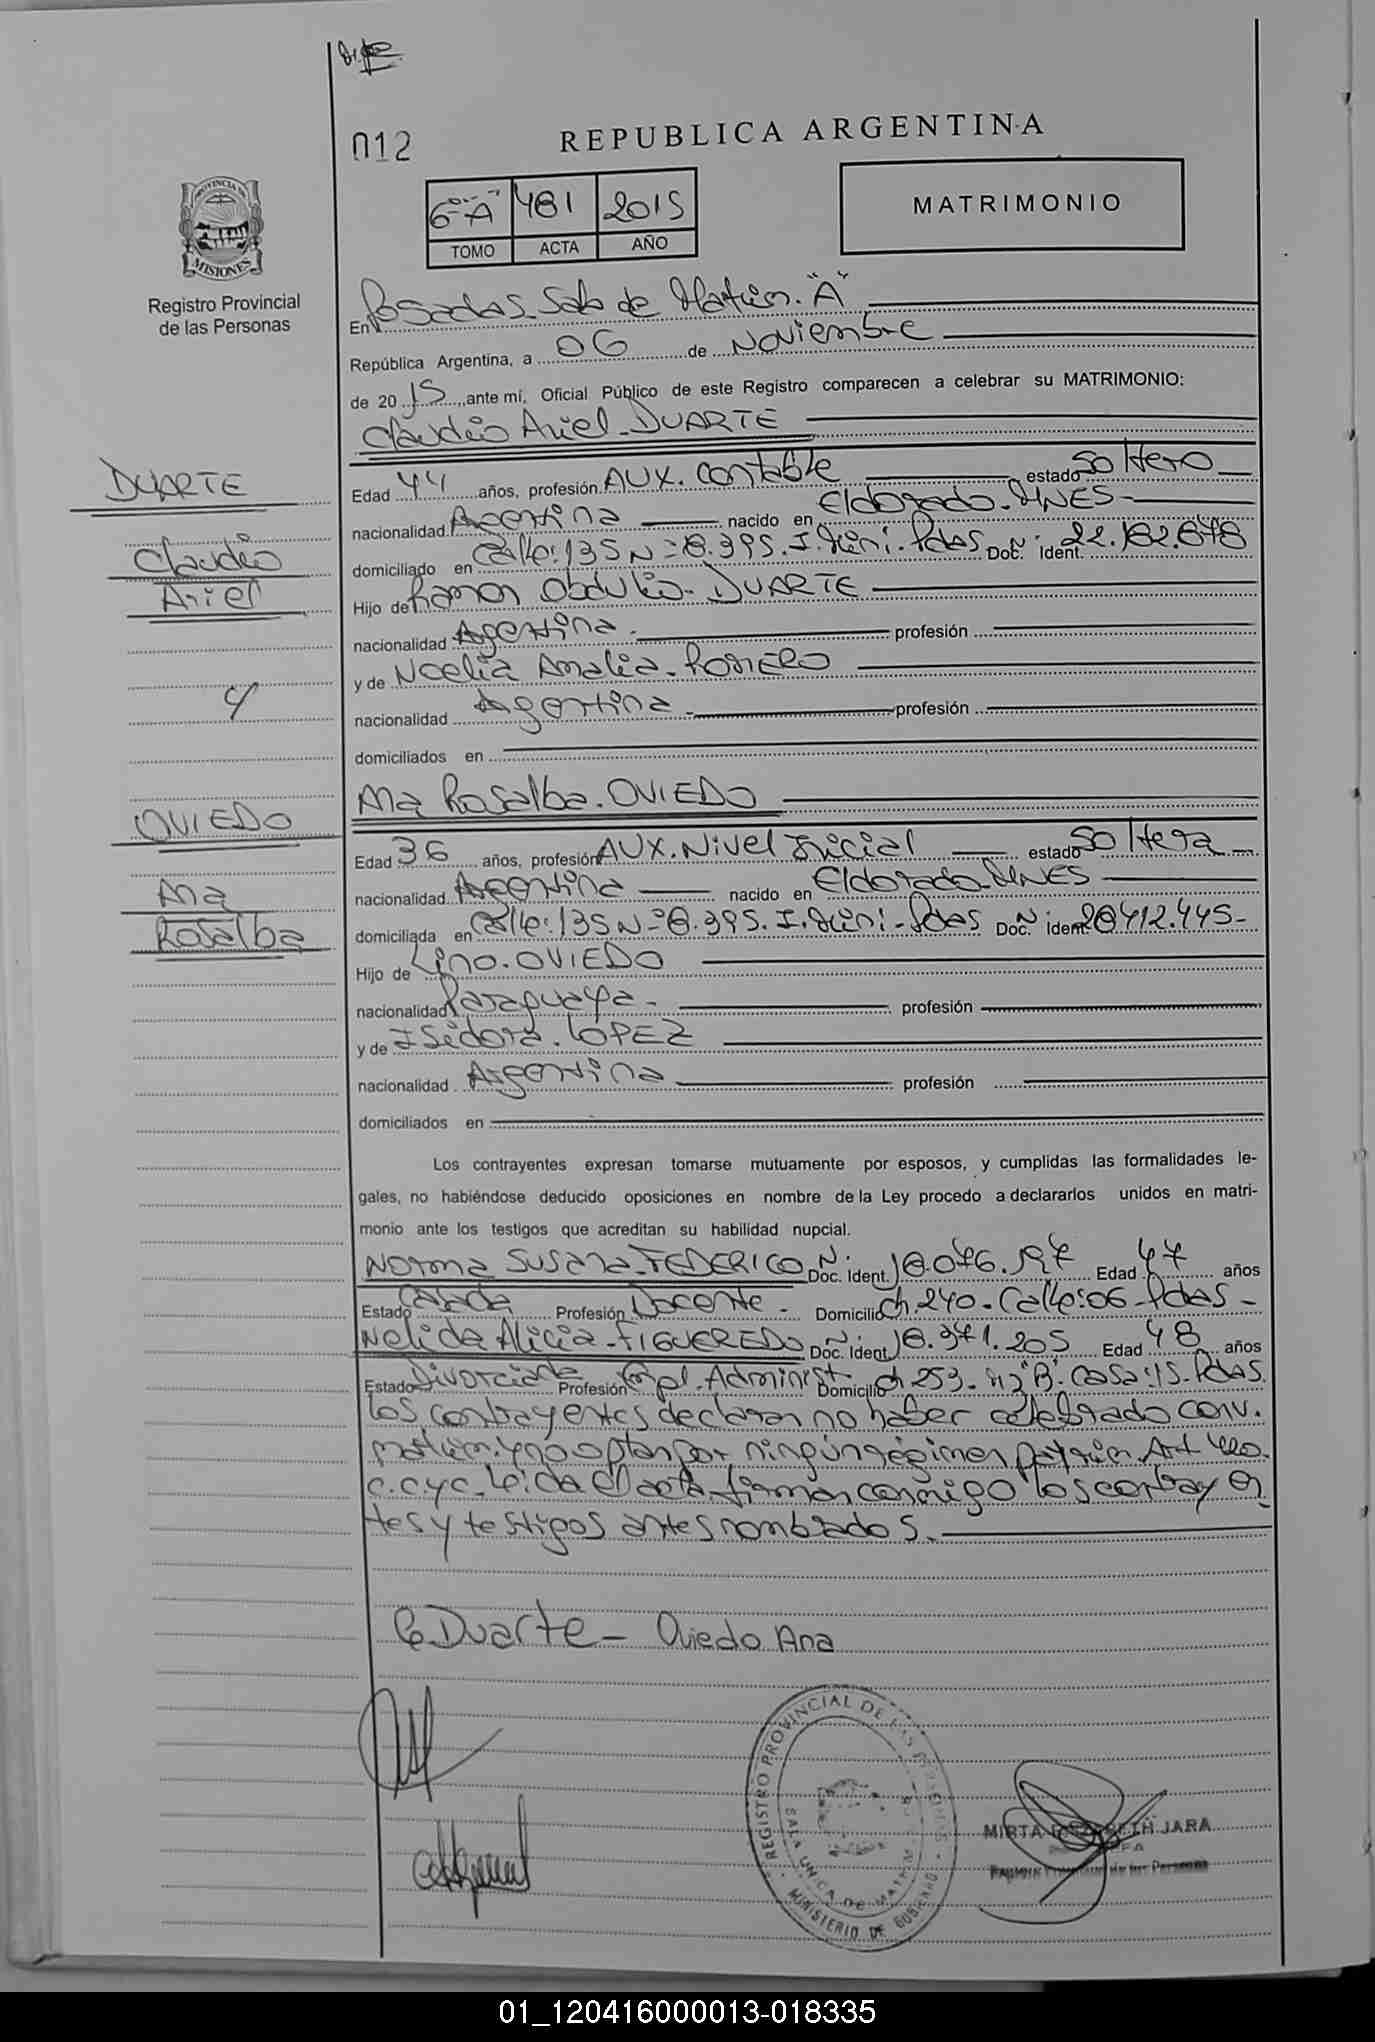 012
REPUBLICA ARGENTINA
6º-A 481 2015
TOMO ACTA AÑO
MATRIMONIO
PROVINCIA DE
MISIONES
Registro Provincial
de las Personas
En Posadas-Sala de Matrim. "A"
República Argentina, a 06 de Noviembre
de 2015, ante mí, Oficial Público de este Registro comparecen a celebrar su MATRIMONIO:
Claudio Ariel-DUARTE
DUARTE
Claudio
Ariel
Edad 44 años, profesión AUX. Contable estado Soltero
nacionalidad Argentina nacido en Eldorado-MNES-
domiciliado en Calle:135 Nº 8.395. I. Guini-Pdas Doc. Nº Ident. 22.182.878
Hijo de Ramon Obdulio-DUARTE
nacionalidad Argentina. profesión
y de Noelia Amalia-ROMERO
nacionalidad Argentina. profesión
domiciliados en
y
Ana Rosalba. OVIEDO
OVIEDO
Ana
Rosalba
Edad 36 años, profesión AUX. Nivel Inicial estado Soltera
nacionalidad Argentina nacido en Eldorado-MNES
domiciliada en Calle:135 Nº 8.395. I. Guini-Pdas Doc. Nº ident 28.412.445-
Hijo de Lino. OVIEDO
nacionalidad Paraguaya- profesión
y de Isidora. LOPEZ
nacionalidad Argentina profesión
domiciliados en
Los contrayentes expresan tomarse mutuamente por esposos, y cumplidas las formalidades le-
gales, no habiéndose deducido oposiciones en nombre de la Ley procedo a declararlos unidos en matri-
monio ante los testigos que acreditan su habilidad nupcial.
Norma Susana-FEDERICO Nº Doc. Ident. 18.076.197 Edad 47 años
Estado Casada Profesión Docente- Domicilio ch. 240-Calle:06-Pdas-
Nelida Alicia-FIGUEREDO Nº Doc. Ident. 18.371.205 Edad 48 años
Estado Divorciada Profesión Empl. Administ. Domicilio ch 253- "B". Casa:15-Pdas.
Los contrayentes declaran no haber celebrado conv.
matrim. y no optan por ningún régimen patrim. Art 420.
C.C.y C. Leida el acta, firman conmigo los contrayen
tes y testigos antes nombrados.
C Duarte- Oviedo Ana
REGISTRO PROVINCIAL DE LAS PERSONAS
SALA UNICA DE MATRIM
MINISTERIO DE GOBIERNO
MIRTA JARA
01_120416000013-018335